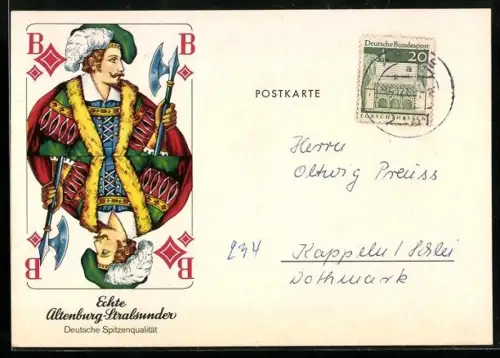 B
B
Deutsche Bundespost
20
LORSCH/HESSEN
POSTKARTE
Herrn
Oltwig Preuss
234
Kappeln / Schlei
Dothmark
B
B
Echte
Altenburg-Stralsunder
Deutsche Spitzenqualität